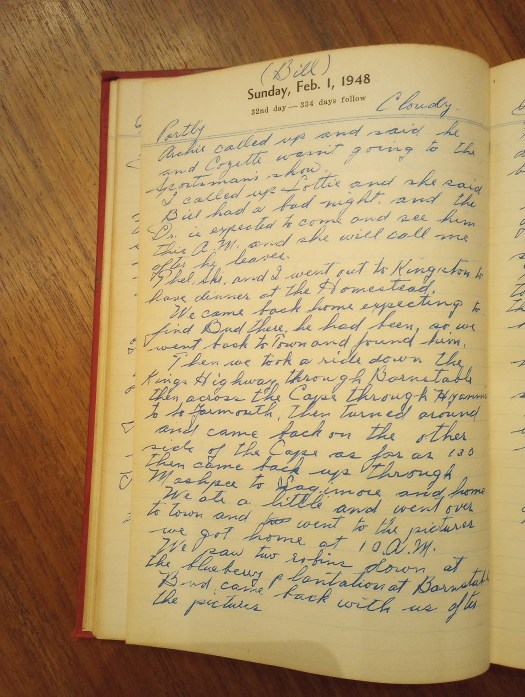 (Bill)
Sunday, Feb. 1, 1948
32nd day—334 days follow
Partly Cloudy.
Archie called up and said he
and Cozette wasn't going to the
Sportsman's show.
I called up Lottie and she said
Bill had a bad night. and the
Dr. is expected to come and see him
this A.M. and she will call me
after he leaves.
and I went out to Kingston to
have dinner at the Homestead.
We came back home expecting to
find Bud there, he had been, so we
went back to Town and found him.
Then we took a ride down the
Kings Highway through Barnstable
then across the Cape through Hyannis
to to Yarmouth, then turned around
and came back on the other
side of the Cape as far as 130
then came back up through
Mashpee to Sagimore and home
We ate a little and went over
to town and went to the pictures
we got home at 10.A.M.
We saw two robins down at
the blueberry plantation at Barnstable
Bud came back with us after
the pictures